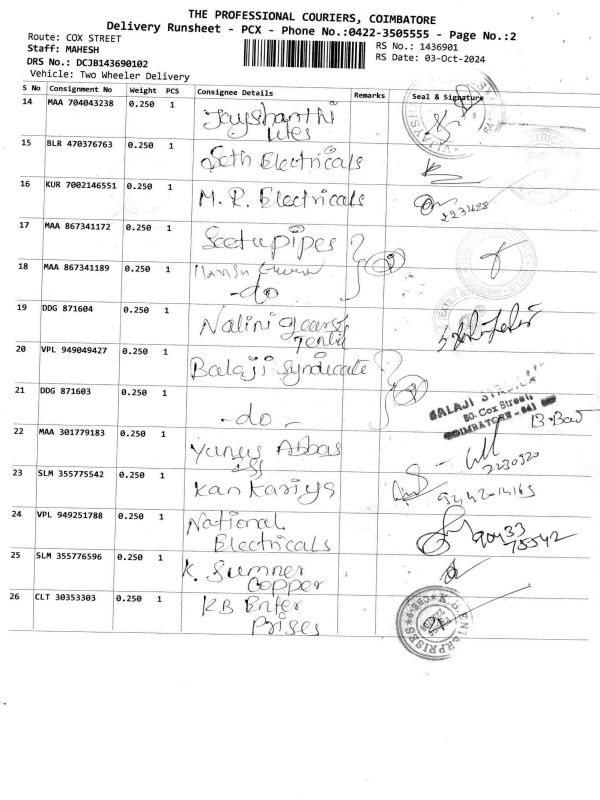 THE PROFESSIONAL COURIERS, COIMBATORE
Delivery Runsheet - PCX - Phone No.:0422-3505555 - Page No.:2
Route: COX STREET
RS No.: 1436901
Staff: MAHESH
RS Date: 03-Oct-2024
DRS No.: DCJB143690102
Vehicle: Two Wheeler Delivery
S No Consignment No Weight PCS Consignee Details Remarks Seal & Signature
14 MAA 704043238 0.250 1 Jayshanthi
lites
15 BLR 470376763 0.250 1 Seth Electricals
16 KUR 7002146551 0.250 1 M. R. Electricals
17 MAA 867341172 0.250 1 Seetupipes
18 MAA 867341189 0.250 1
-do-
19 DDG 871604 0.250 1 Nalini
20 VPL 949049427 0.250 1 Balaji Syndicate
21 DDG 871603 0.250 1 -do-
BALAJI
80. Cox Street
COIMBATORE - 641
22 MAA 301779183 0.250 1 Yunus Abbas
2230920
23 SLM 355775542 0.250 1 Kankariya
24 VPL 949251788 0.250 1 National
Electricals
90433
75542
25 SLM 355776596 0.250 1 K. Sumner
Copper
26 CLT 30353303 0.250 1 KB Enter
Prises
ENTERPRISES